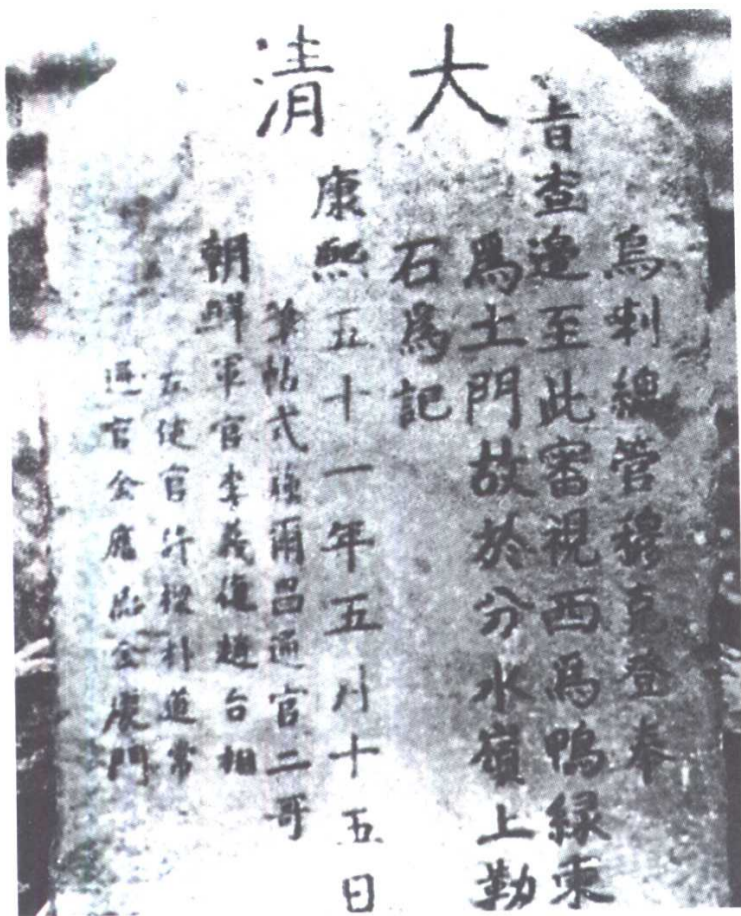 大清
烏剌總管穆克登奉
旨查邊至此審視西爲鴨綠東
爲土門故於分水嶺上勒
石爲記
康熙五十一年五月十五日
筆帖式蘇爾昌通官二哥
朝鮮軍官李義復趙台相
差使官許樑朴道常
通官金應金慶門